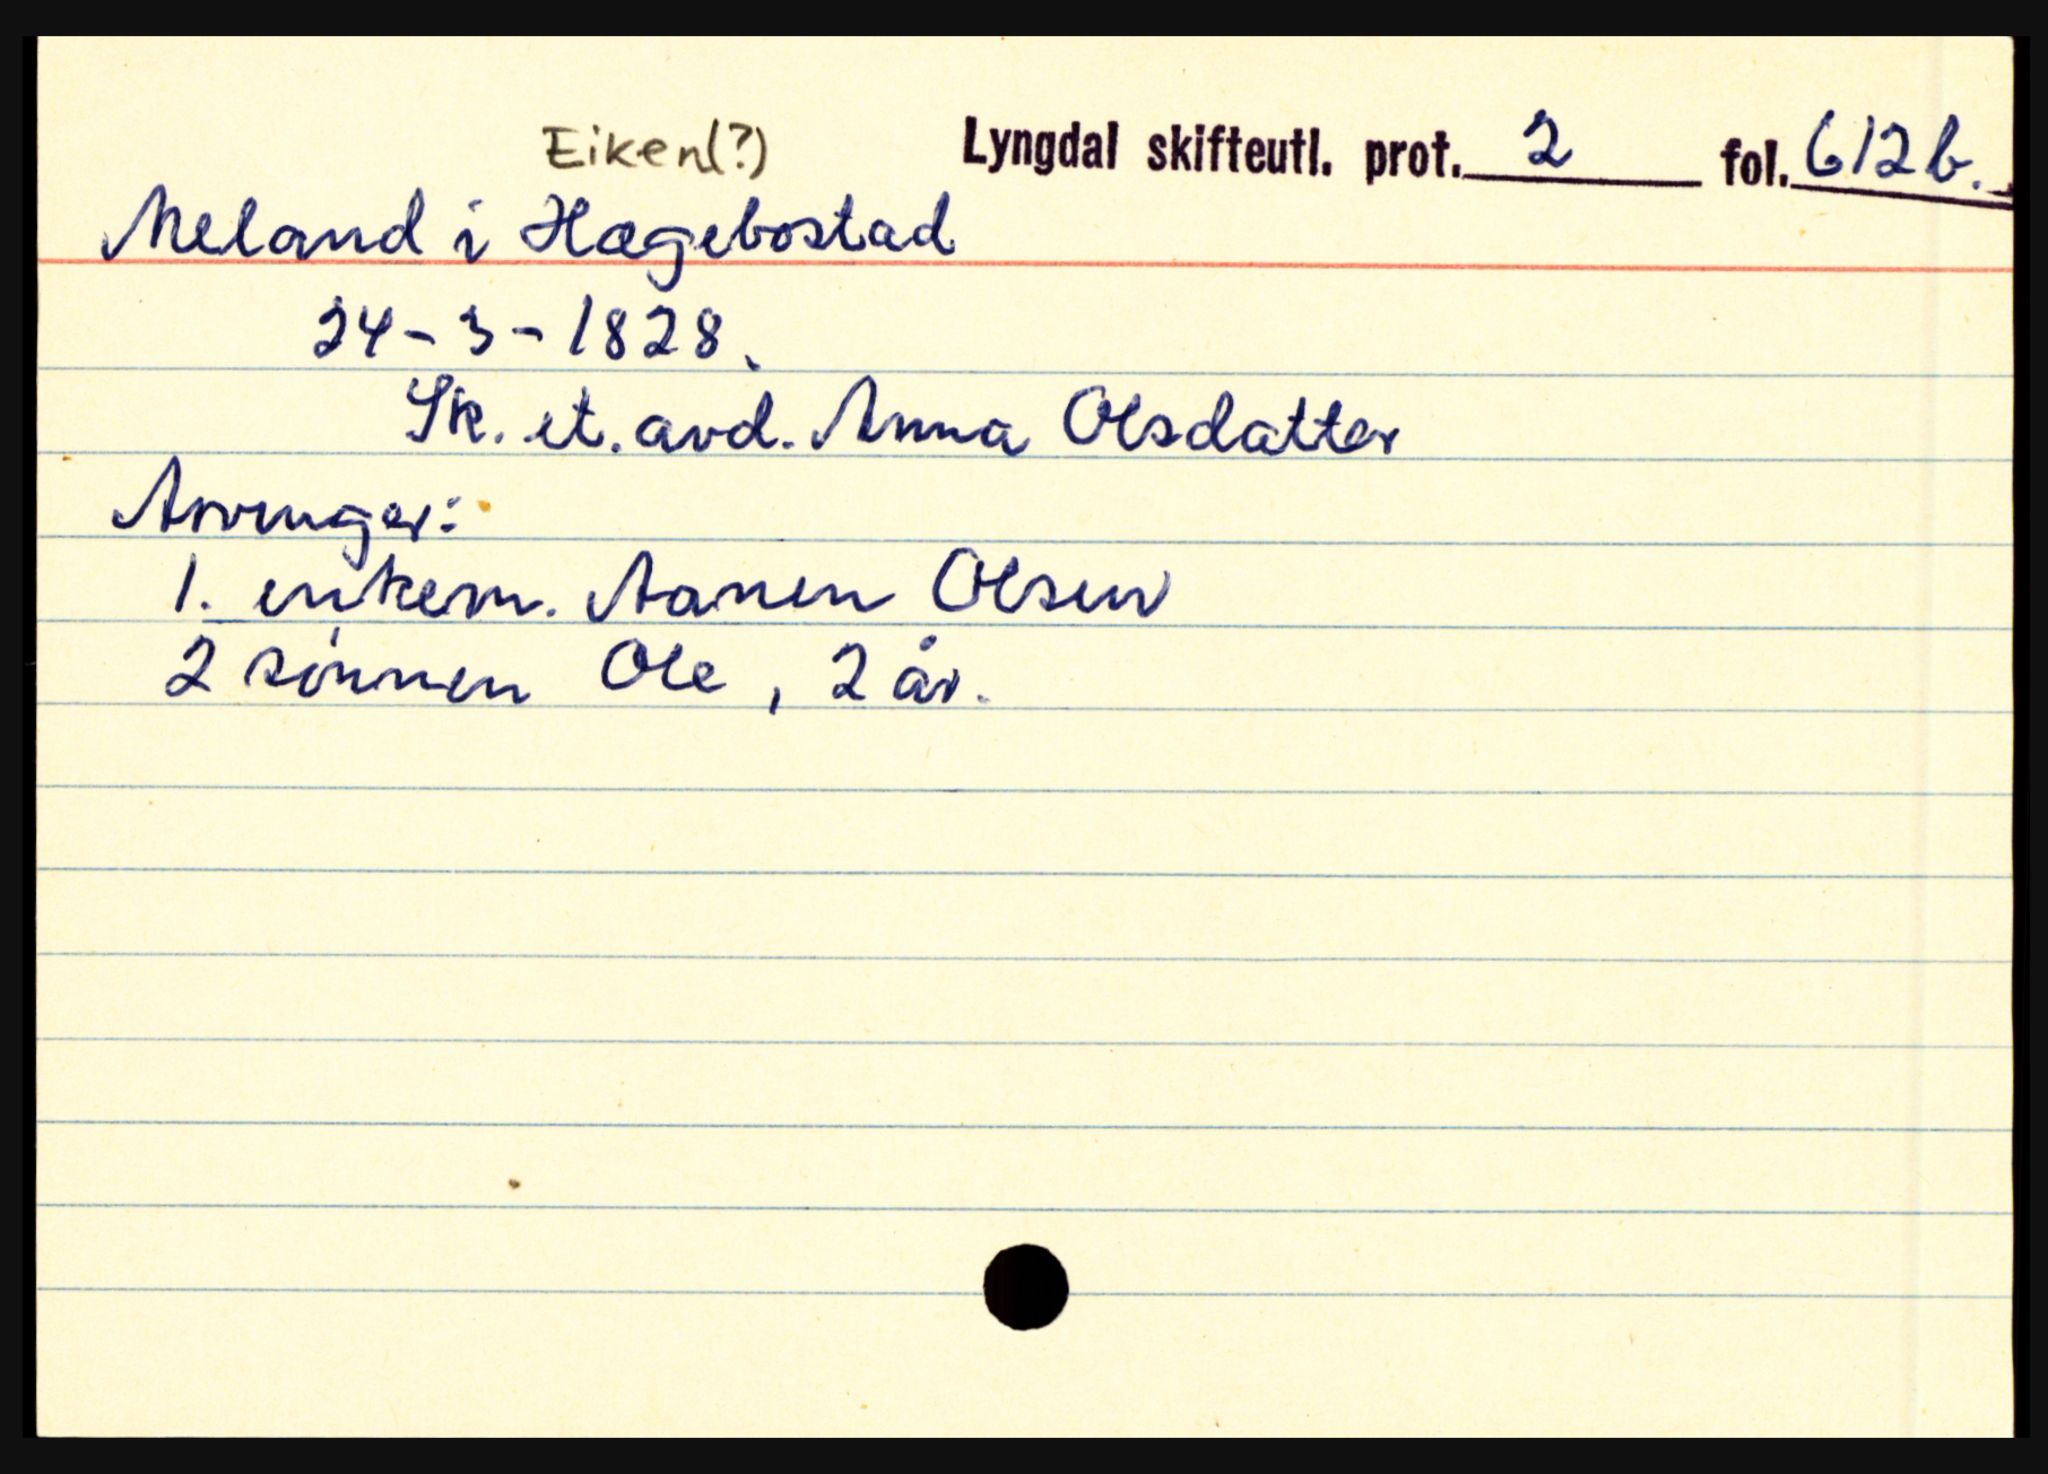 Eiken(?) Lyngdal skifteutl. prot. 2 fol. 612b.
Meland i Hægebostad
24-3-1828.
Sk. et. avd. Anna Olsdatter
Arvinger:
1. enkem. Aanen Olsen
2 sønnen Ole, 2 år.